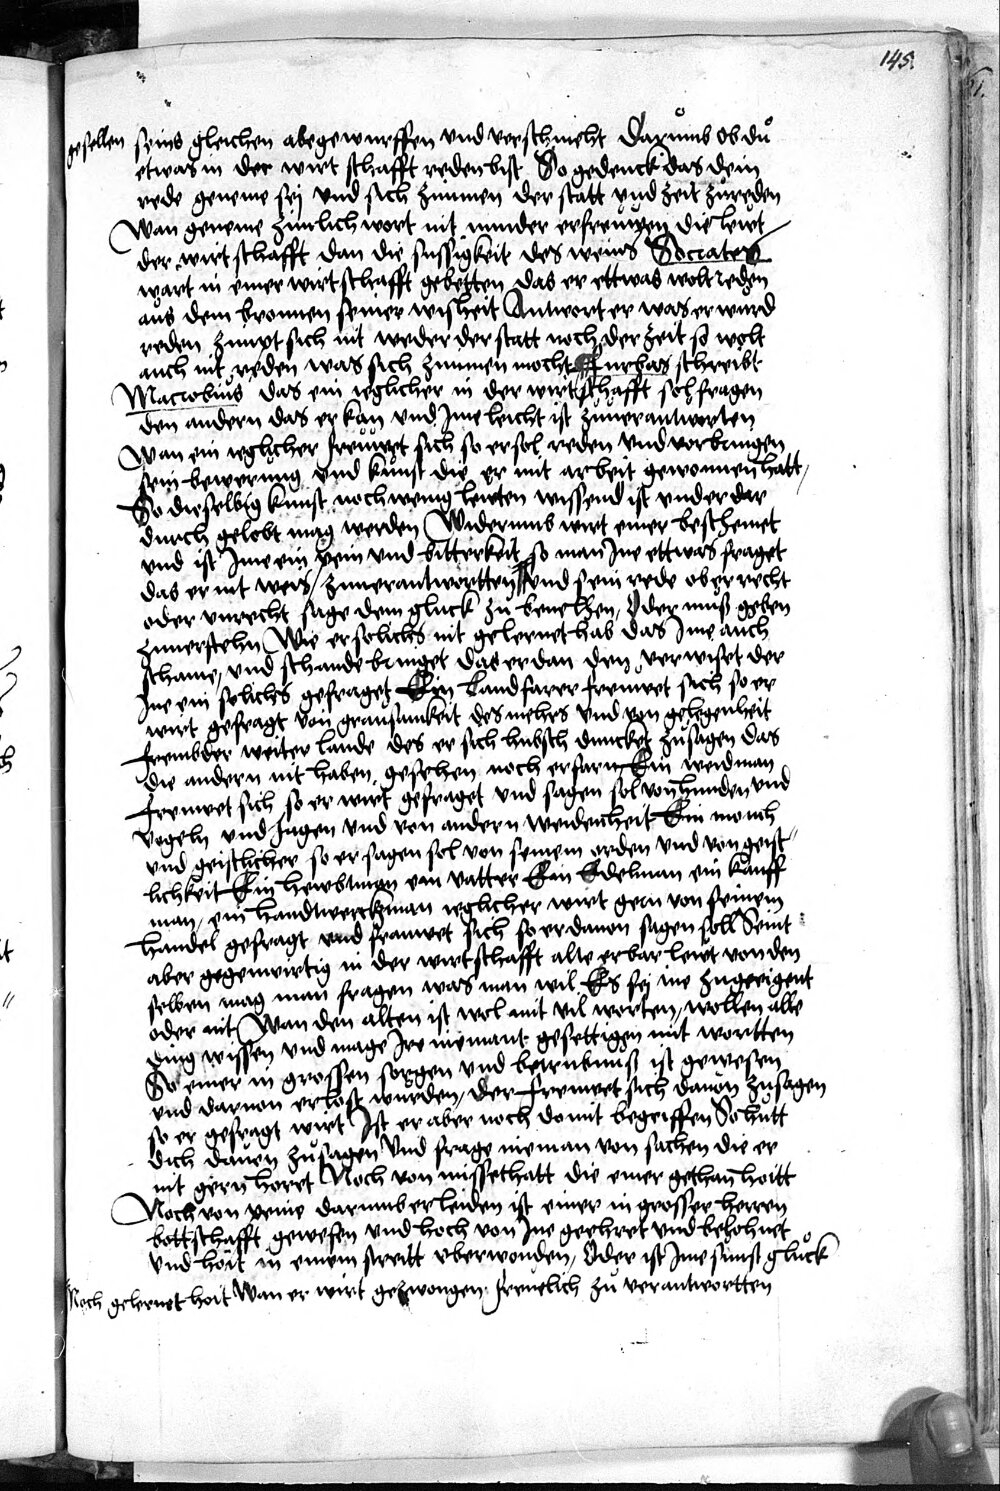 145.
gesellen seins gleichen abegewurffen vnd verschmeht Darůmb ob dů
etwas in der wirtschafft reden bist So gedenck das dein
rede geneme sej vnd sich zimmen der statt vnd zeit zůreden
Wan geneme zimlich wort nit minder erfrewen die lewt
der wirtschafft dan die sussigkeit des weins Socrates
wart in einer wirtschafft gebetten das er ettwas wolt reden
aus dem bronnen seiner wisheit Antwort er was er wurd
reden zimpt sich nit weder der statt noch der zeit so wolt
auch nit reden was sich zimmen mocht Furbas schreibt
Macrobius das ein ieglicher in der wirtschafft sol fragen
den andern das er kan vnd Ime leicht ist zuuerantworten
Wan ein ieglicher frewet sich so er sol reden vnd vorbringen
sein bewerung vnd kunst die er mit arbeit gewonnen hatt
So dieselbig kunst noch wenig lewten wissend ist vnd er dar
durch gelobt mag werden Widerumb wirt einer beschemet
vnd ist Ime ein pein vnd bitterkeit so man Ine ettwas fraget
das er nit weis zuuerantwortten vnd sein rede ober recht
oder vnrecht sage dem gluck zů beuelhen Oder muß geben
zuuerstehn Wie er solichs nit gelernet hab das Ime auch
schame vnd schande bringet das er dan den verwiset der
Ine ein solichs gefraget Ein landfarer frewet sich so er
wirt gefragt von grausamkeit des mehrs vnd von gelegenheit
frembder weiter lande des er sich hubsch duncket zůsagen das
die andern nit haben gesehen noch erfarn Ein weidman
frewet sich so er wirt gefraget vnd sagen sol von hunden vnd
vogeln vnd Jagen vnd von andern weidenheit Ein monch
vnd geistlicher so er sagen sol von seinem orden vnd von geist
lichkeit Ein hewbtman ein vatter Ein Edelman ein kauff
man ein handtwerckman ieglicher wirt gern von seinem
handel gefragt vnd frauwet sich so er dauon sagen soll Seint
aber gegenwirtig in der wirtschafft alte erbar lewt von den
selben mag man fragen was man wil Es sej ine zugeeigent
oder nit Wan den alten ist wol mit vil worten wollen alle
ding wissen vnd mage Ire niemant gesettigen mit wortten
So einer in grossen sorgen vnd betrubnuß ist gewesen
vnd daruon erlost wurden der frewet sich dauon zůsagen
so er gefragt wirt Ist er aber noch domit begriffen So hůtt
dich dauon zůsagen Vnd frage nieman von sachen die er
nit gern horet Noch von missethatt die einer gethan hoitt
Noch von peine darumb erleiden ist einer in grosser herren
bottschafft gewesen vnd hoch von Ine geehret vnd belohnet
vnd hoit in einem streitt vberwonden Oder ist Ime sunst glůck
Noch gelernet hoit Wan er wirt gezwongen freuelich zů verantwortten